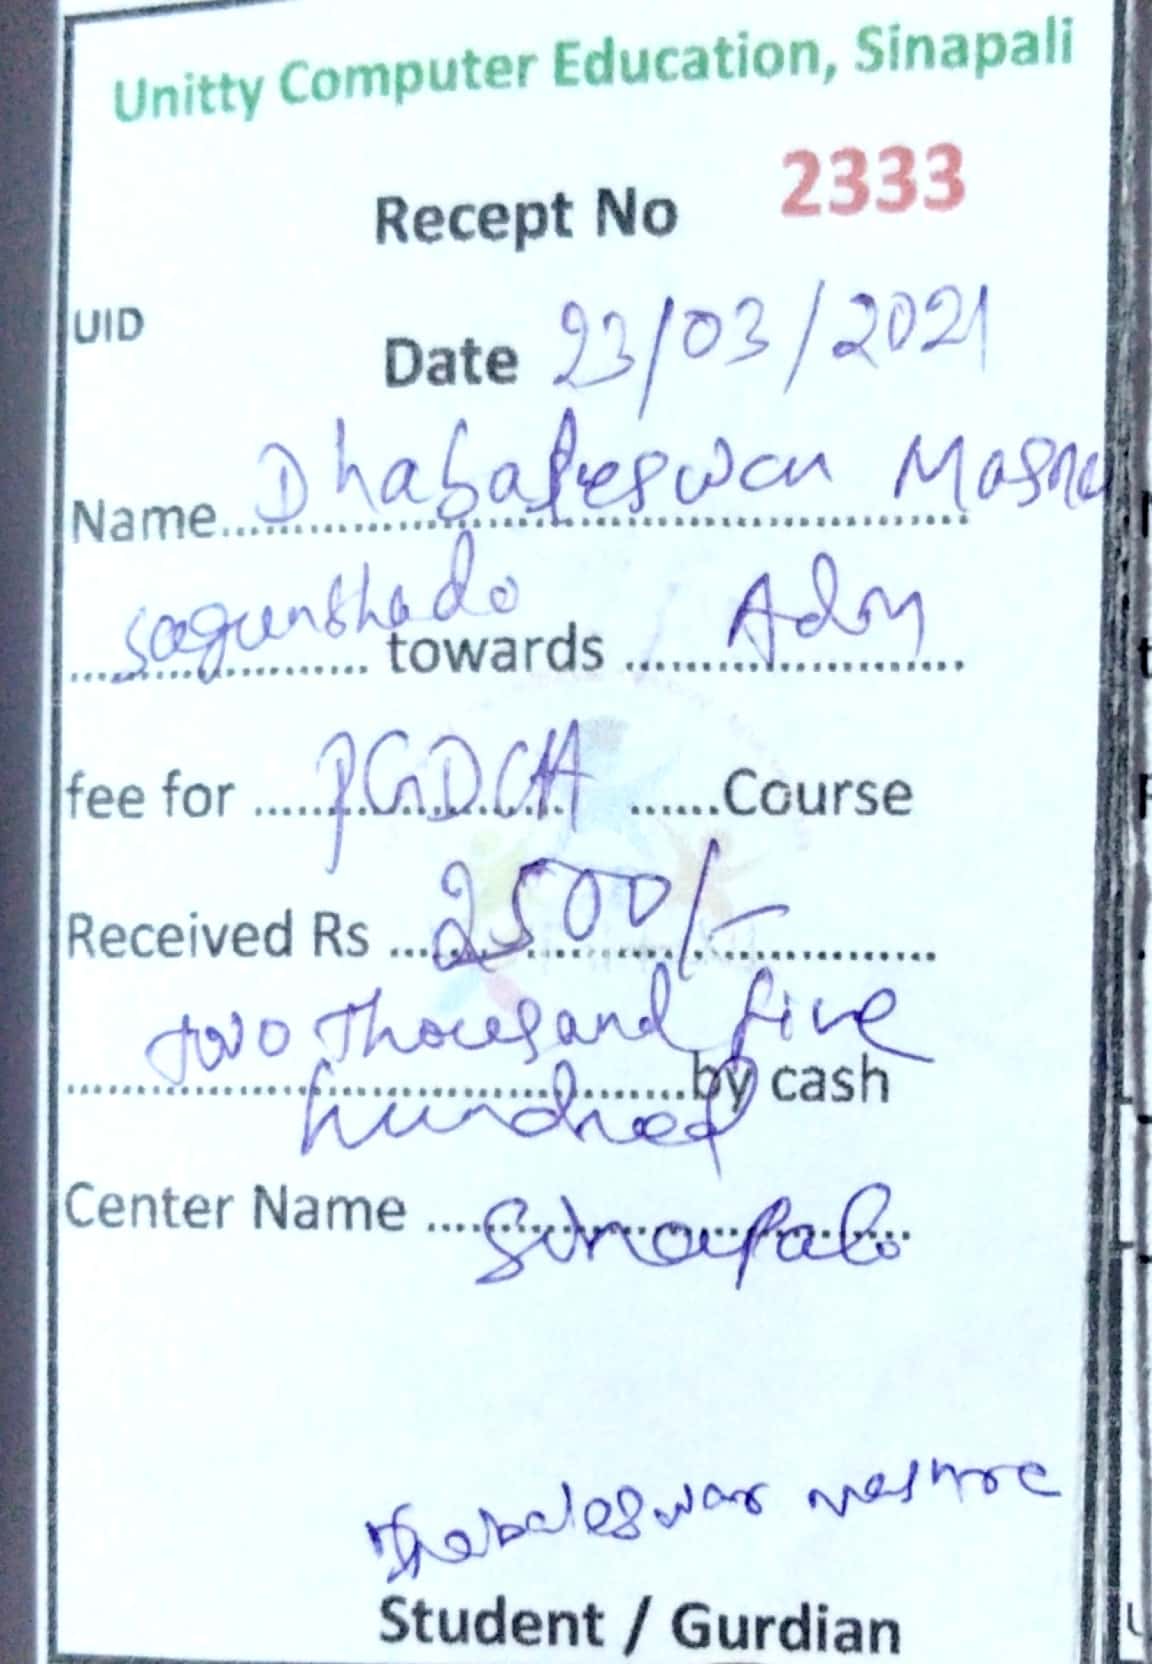 Unitty Computer Education, Sinapali
Recept No 2333
UID
Date 23/03/2021
Name Dhabaleswar
towards Adm
fee for PGDCA Course
Received Rs 2500/-
two thousand five
by cash
hundred
Center Name Sinapali
Dhabaleswar
Student / Gurdian